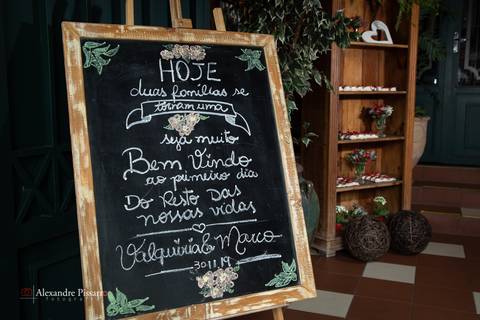 HOJE
duas famílias se
tornam uma
seja muito
Bem Vindo
ao primeiro dia
Do Resto Das
nossas vidas
Valquiria & Marco
30.11.19
Alexandre Pissarro
fotografia